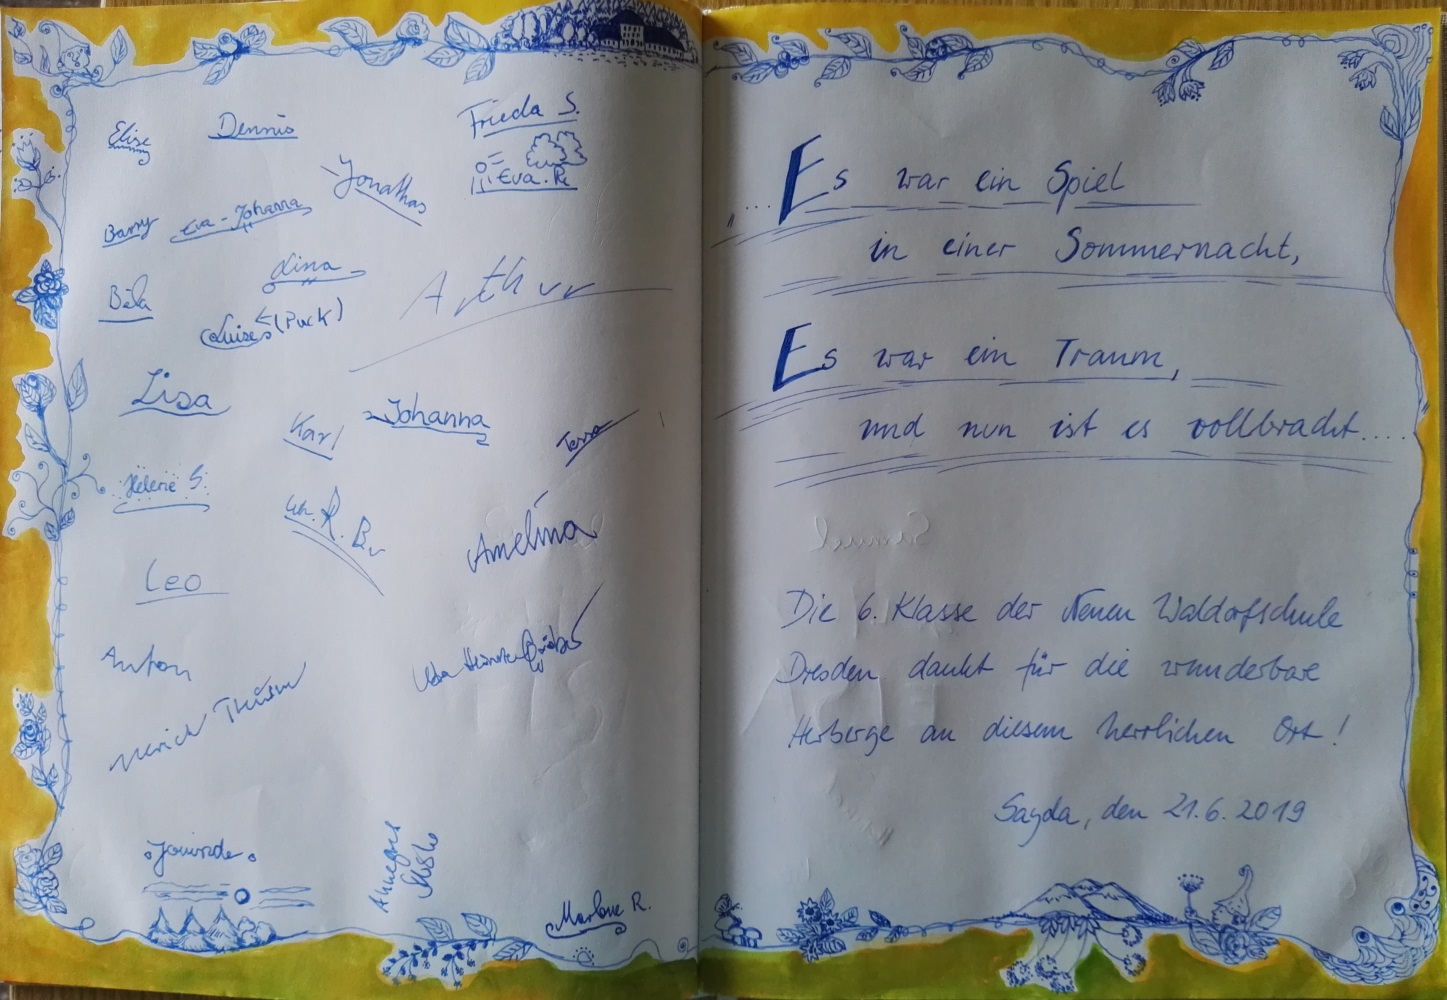 Elise
Dennis
Frieda S.
Jonathas
Eva. R.
Barry
Eva-Johanna
Lina
Béla
Luise (Puck)
Arthur
Lisa
Karl
Johanna
Helene S.
R. B.
Amelina
Leo
Anton
Marlene R.
„.... Es war ein Spiel
in einer Sommernacht,
Es war ein Traum,
und nun ist es vollbracht....
Die 6. Klasse der Neuen Waldorfschule
Dresden dankt für die wunderbare
Herberge an diesem herrlichen Ort!
Sayda, den 21.6.2019